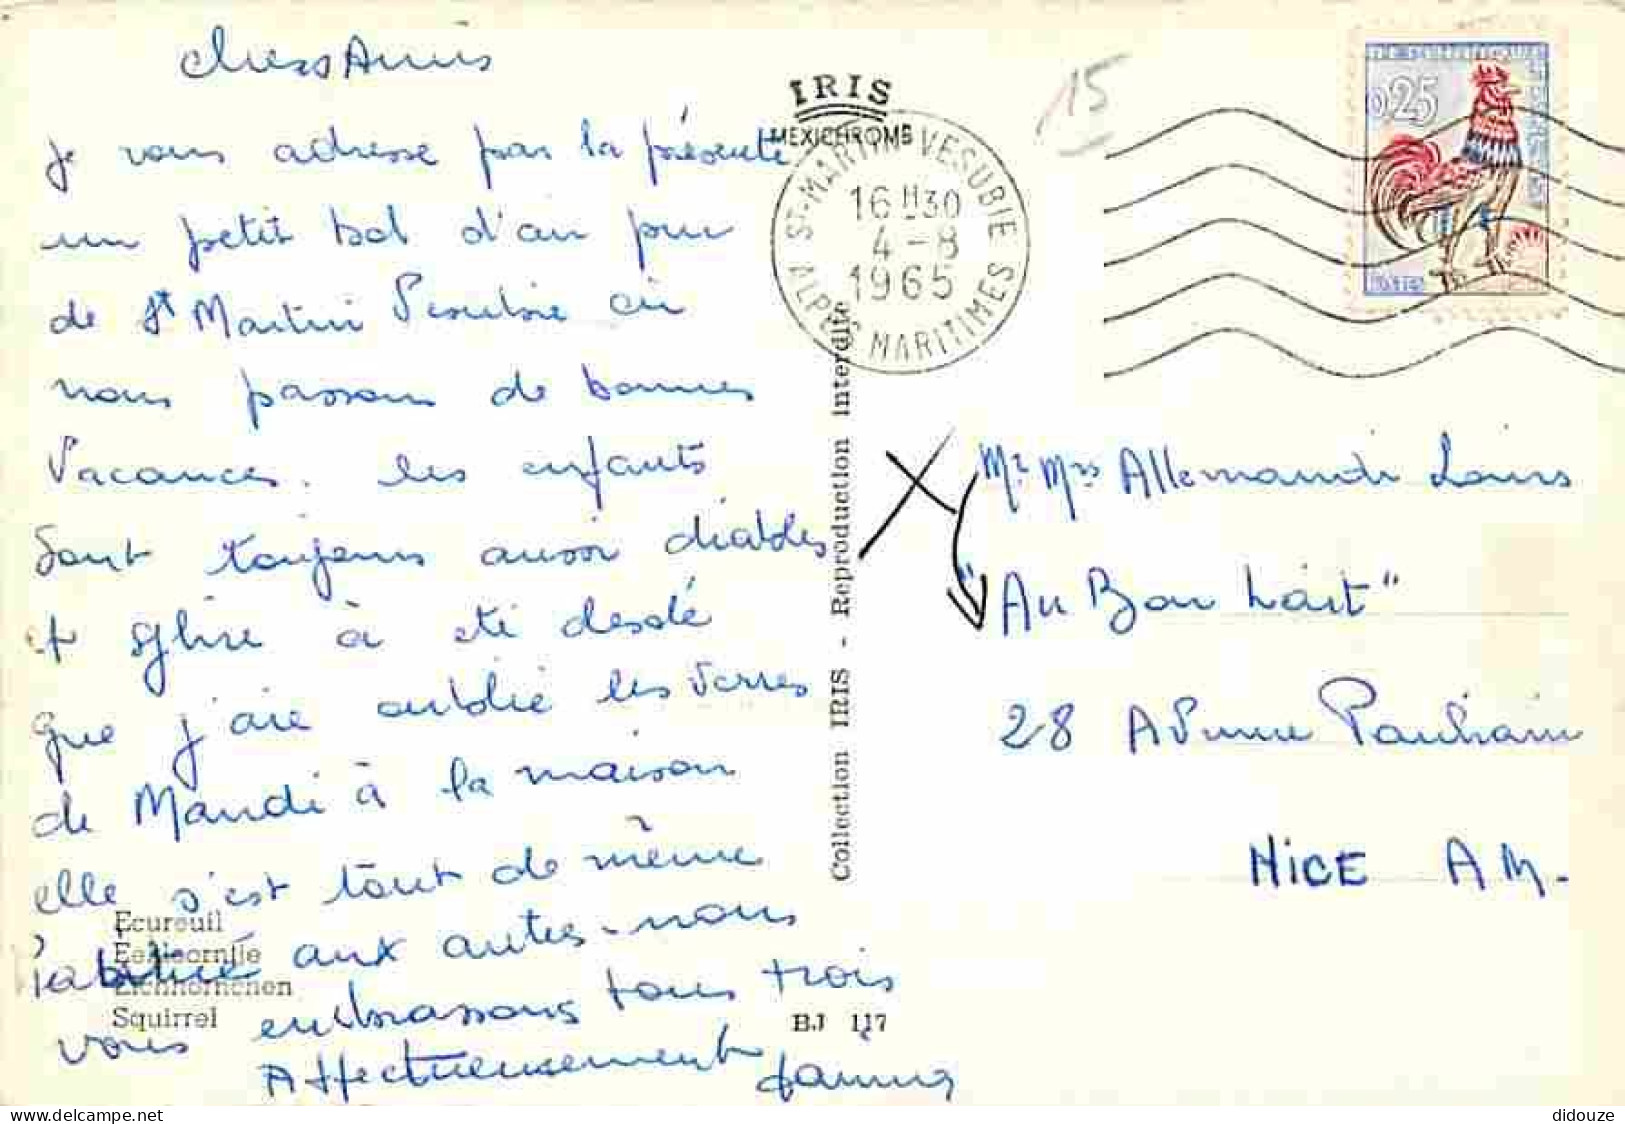 Chers Amis
je vous adresse par la présente
un petit bol d'air pur
de St Martin Vesubie où
nous passons de bonnes
Vacances. les enfants
sont toujours aussi diables
et à été desolé
que j'aie oublié les verres
de Mandi à la maison
elle s'est tout de même
habitué aux autes. nous
vous embrassons tous trois
Affectueusement
Ecureuil
Eekhoorntje
Eichhörnchen
Squirrel
BJ 117
IRIS
MEXICHROME
Collection IRIS - Reproduction interdite
ST-MARTIN-VESUBIE
16 H 30
4 - 8
1965
ALPES MARITIMES
15
0,25
Mr Mrs Allemandi Louis
"Au Bon Lait"
28 Avenue Pauliani
NICE A M.
didouze